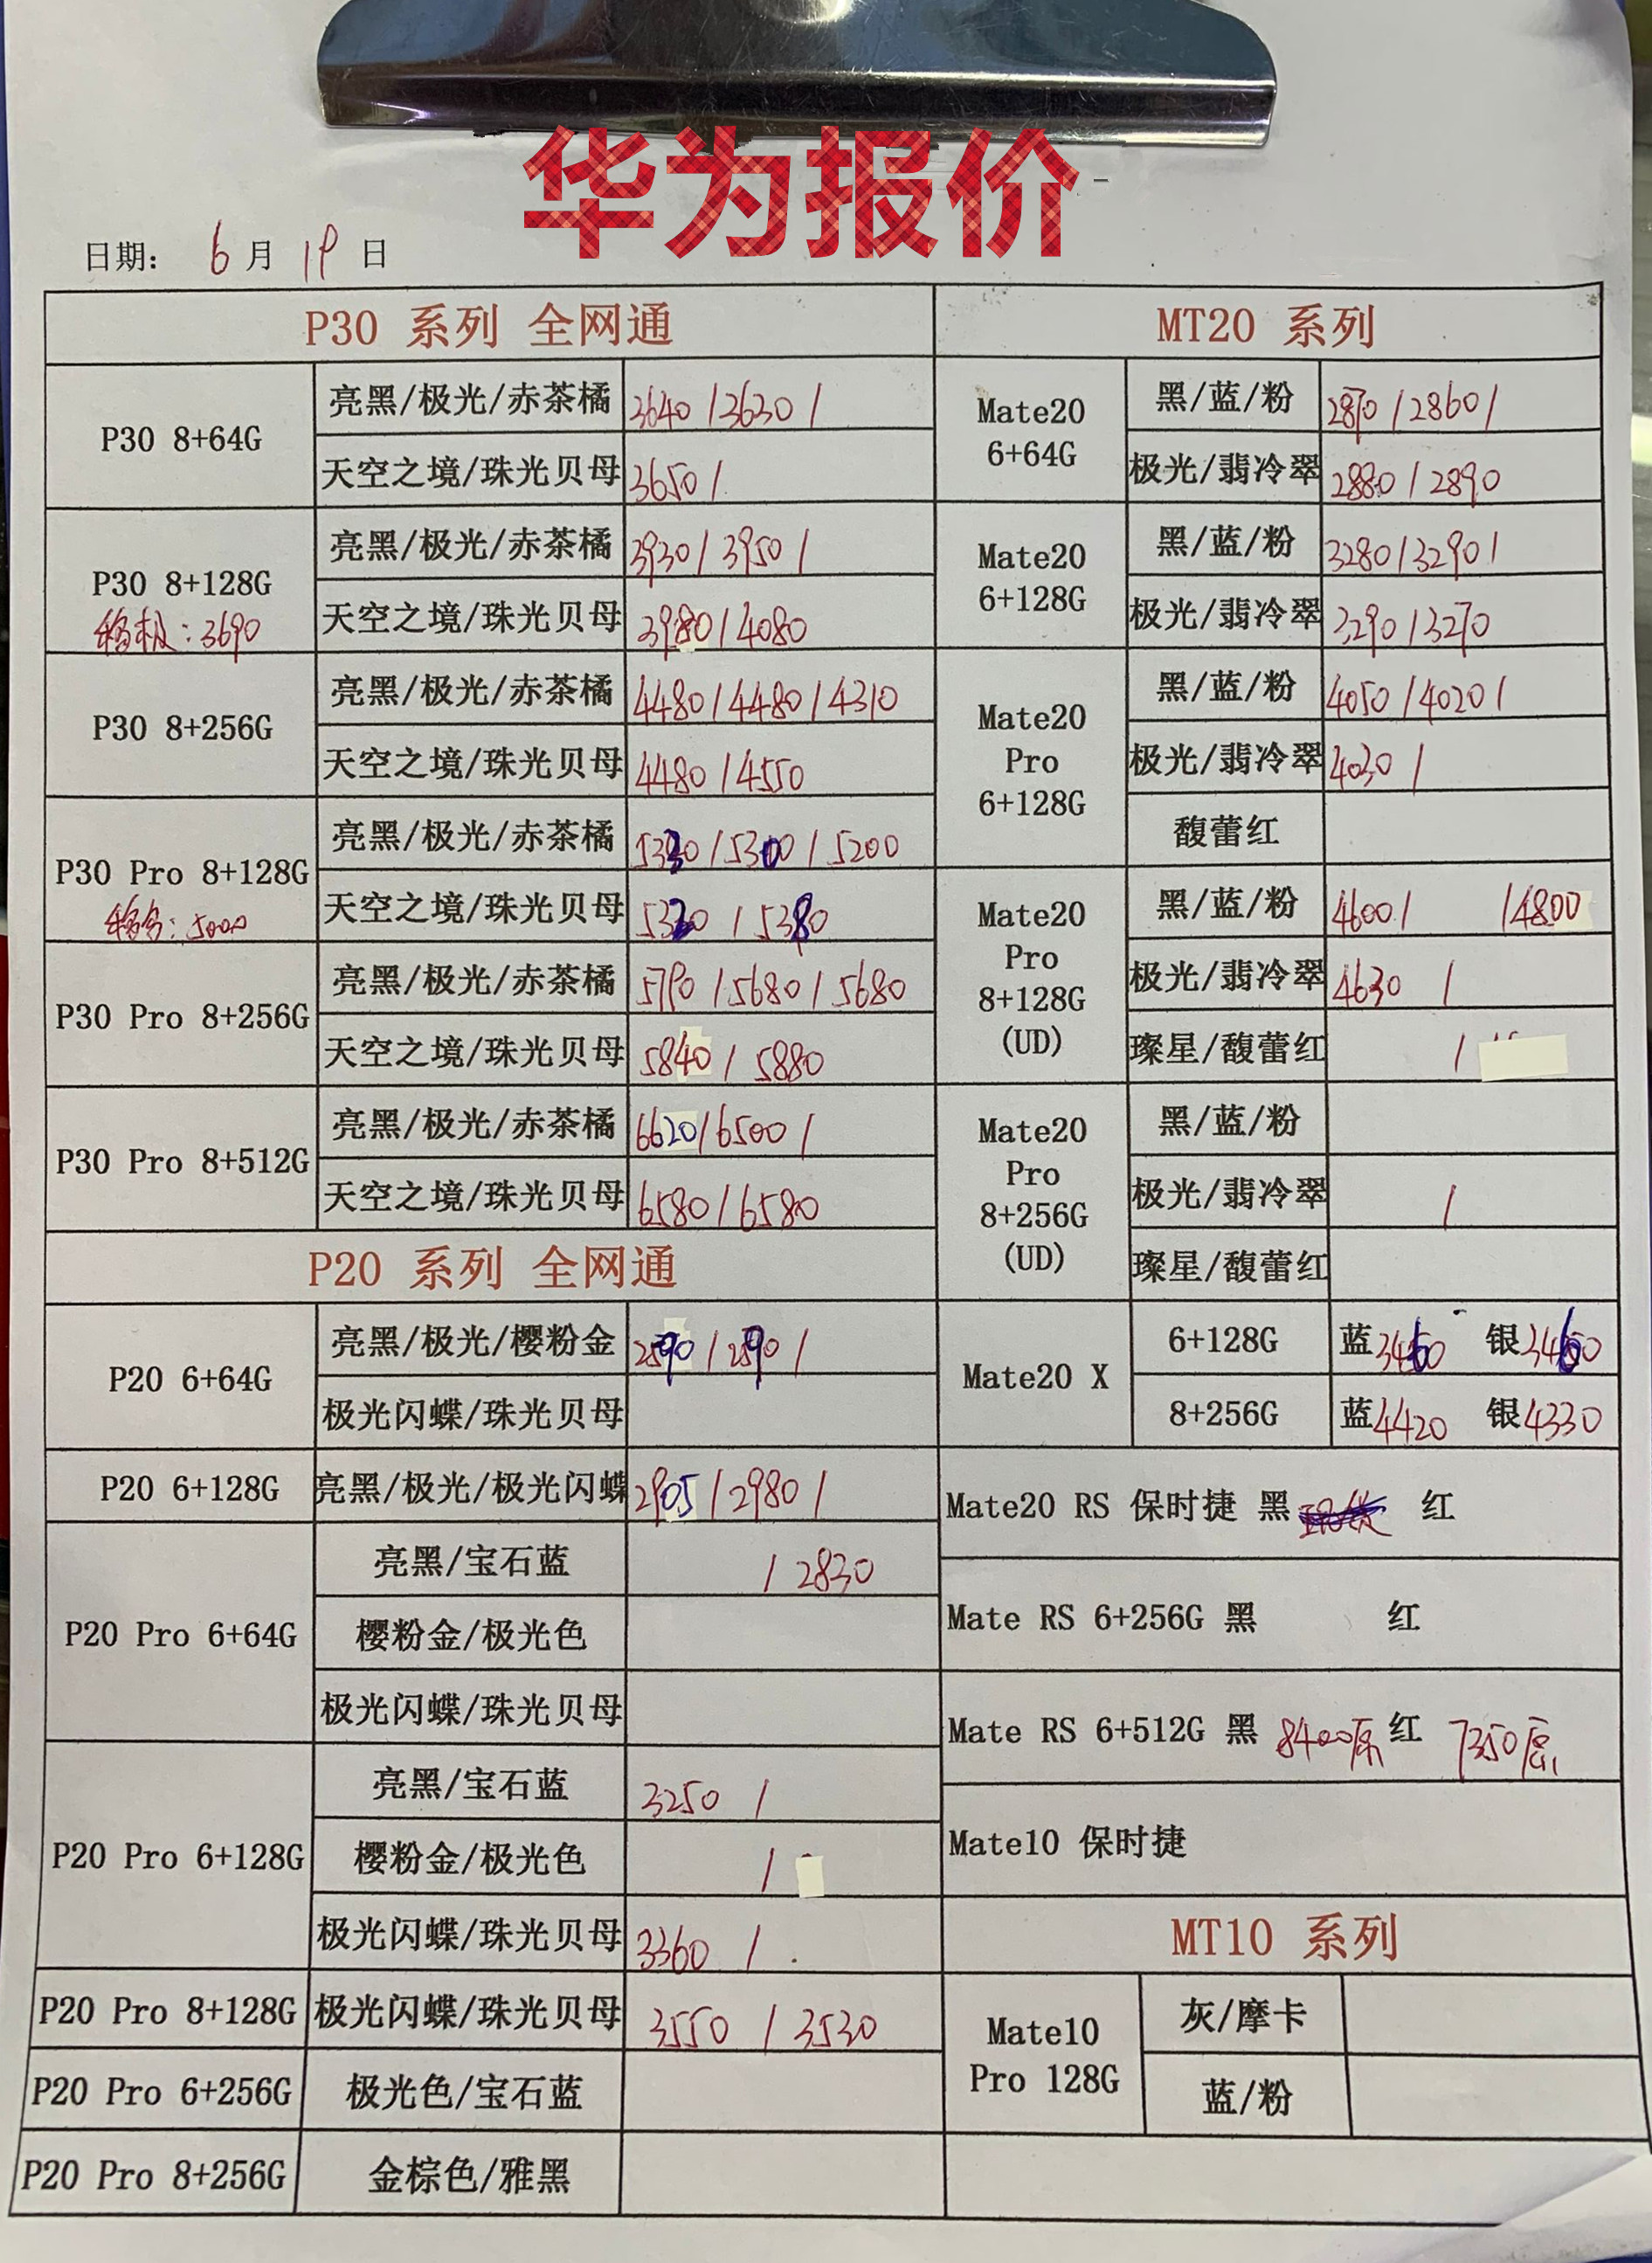 华为报价
日期： 6 月 19 日
P30 系列 全网通
P30 8+64G
亮黑/极光/赤茶橘 3640 / 3630 /
天空之境/珠光贝母 3650 /
P30 8+128G
移极：3690
亮黑/极光/赤茶橘 3930 / 3950 /
天空之境/珠光贝母 3980 / 4080
P30 8+256G
亮黑/极光/赤茶橘 4480 / 4480 / 4310
天空之境/珠光贝母 4480 / 4550
P30 Pro 8+128G
亮黑/极光/赤茶橘 5330 / 5300 / 5200
天空之境/珠光贝母 5320 / 5380
P30 Pro 8+256G
亮黑/极光/赤茶橘 5790 / 5680 / 5680
天空之境/珠光贝母 5840 / 5880
P30 Pro 8+512G
亮黑/极光/赤茶橘 6620 / 6500 /
天空之境/珠光贝母 6580 / 6580
P20 系列 全网通
P20 6+64G
亮黑/极光/樱粉金 2590 / 2590 /
极光闪蝶/珠光贝母
P20 6+128G
亮黑/极光/极光闪蝶 2905 / 2980 /
P20 Pro 6+64G
亮黑/宝石蓝 / 2830
樱粉金/极光色
极光闪蝶/珠光贝母
P20 Pro 6+128G
亮黑/宝石蓝 3250 /
樱粉金/极光色 /
极光闪蝶/珠光贝母 3360 /
P20 Pro 8+128G
极光闪蝶/珠光贝母 3550 / 3530
P20 Pro 6+256G
极光色/宝石蓝
P20 Pro 8+256G
金棕色/雅黑
MT20 系列
Mate20
6+64G
黑/蓝/粉 2870 / 2860 /
极光/翡冷翠 2880 / 2890
Mate20
6+128G
黑/蓝/粉 3280 / 3290 /
极光/翡冷翠 3290 / 3270
Mate20
Pro
6+128G
黑/蓝/粉 4050 / 4020 /
极光/翡冷翠 4030 /
馥蕾红
Mate20
Pro
8+128G
(UD)
黑/蓝/粉 4600 / / 4800
极光/翡冷翠 4630 /
璨星/馥蕾红 /
Mate20
Pro
8+256G
(UD)
黑/蓝/粉
极光/翡冷翠 /
璨星/馥蕾红
Mate20 X
6+128G 蓝 3460 银 3460
8+256G 蓝 4420 银 4330
Mate20 RS 保时捷 黑 红
Mate RS 6+256G 黑 红
Mate RS 6+512G 黑 8400原 红 7350原
Mate10 保时捷
MT10 系列
Mate10
Pro 128G
灰/摩卡
蓝/粉